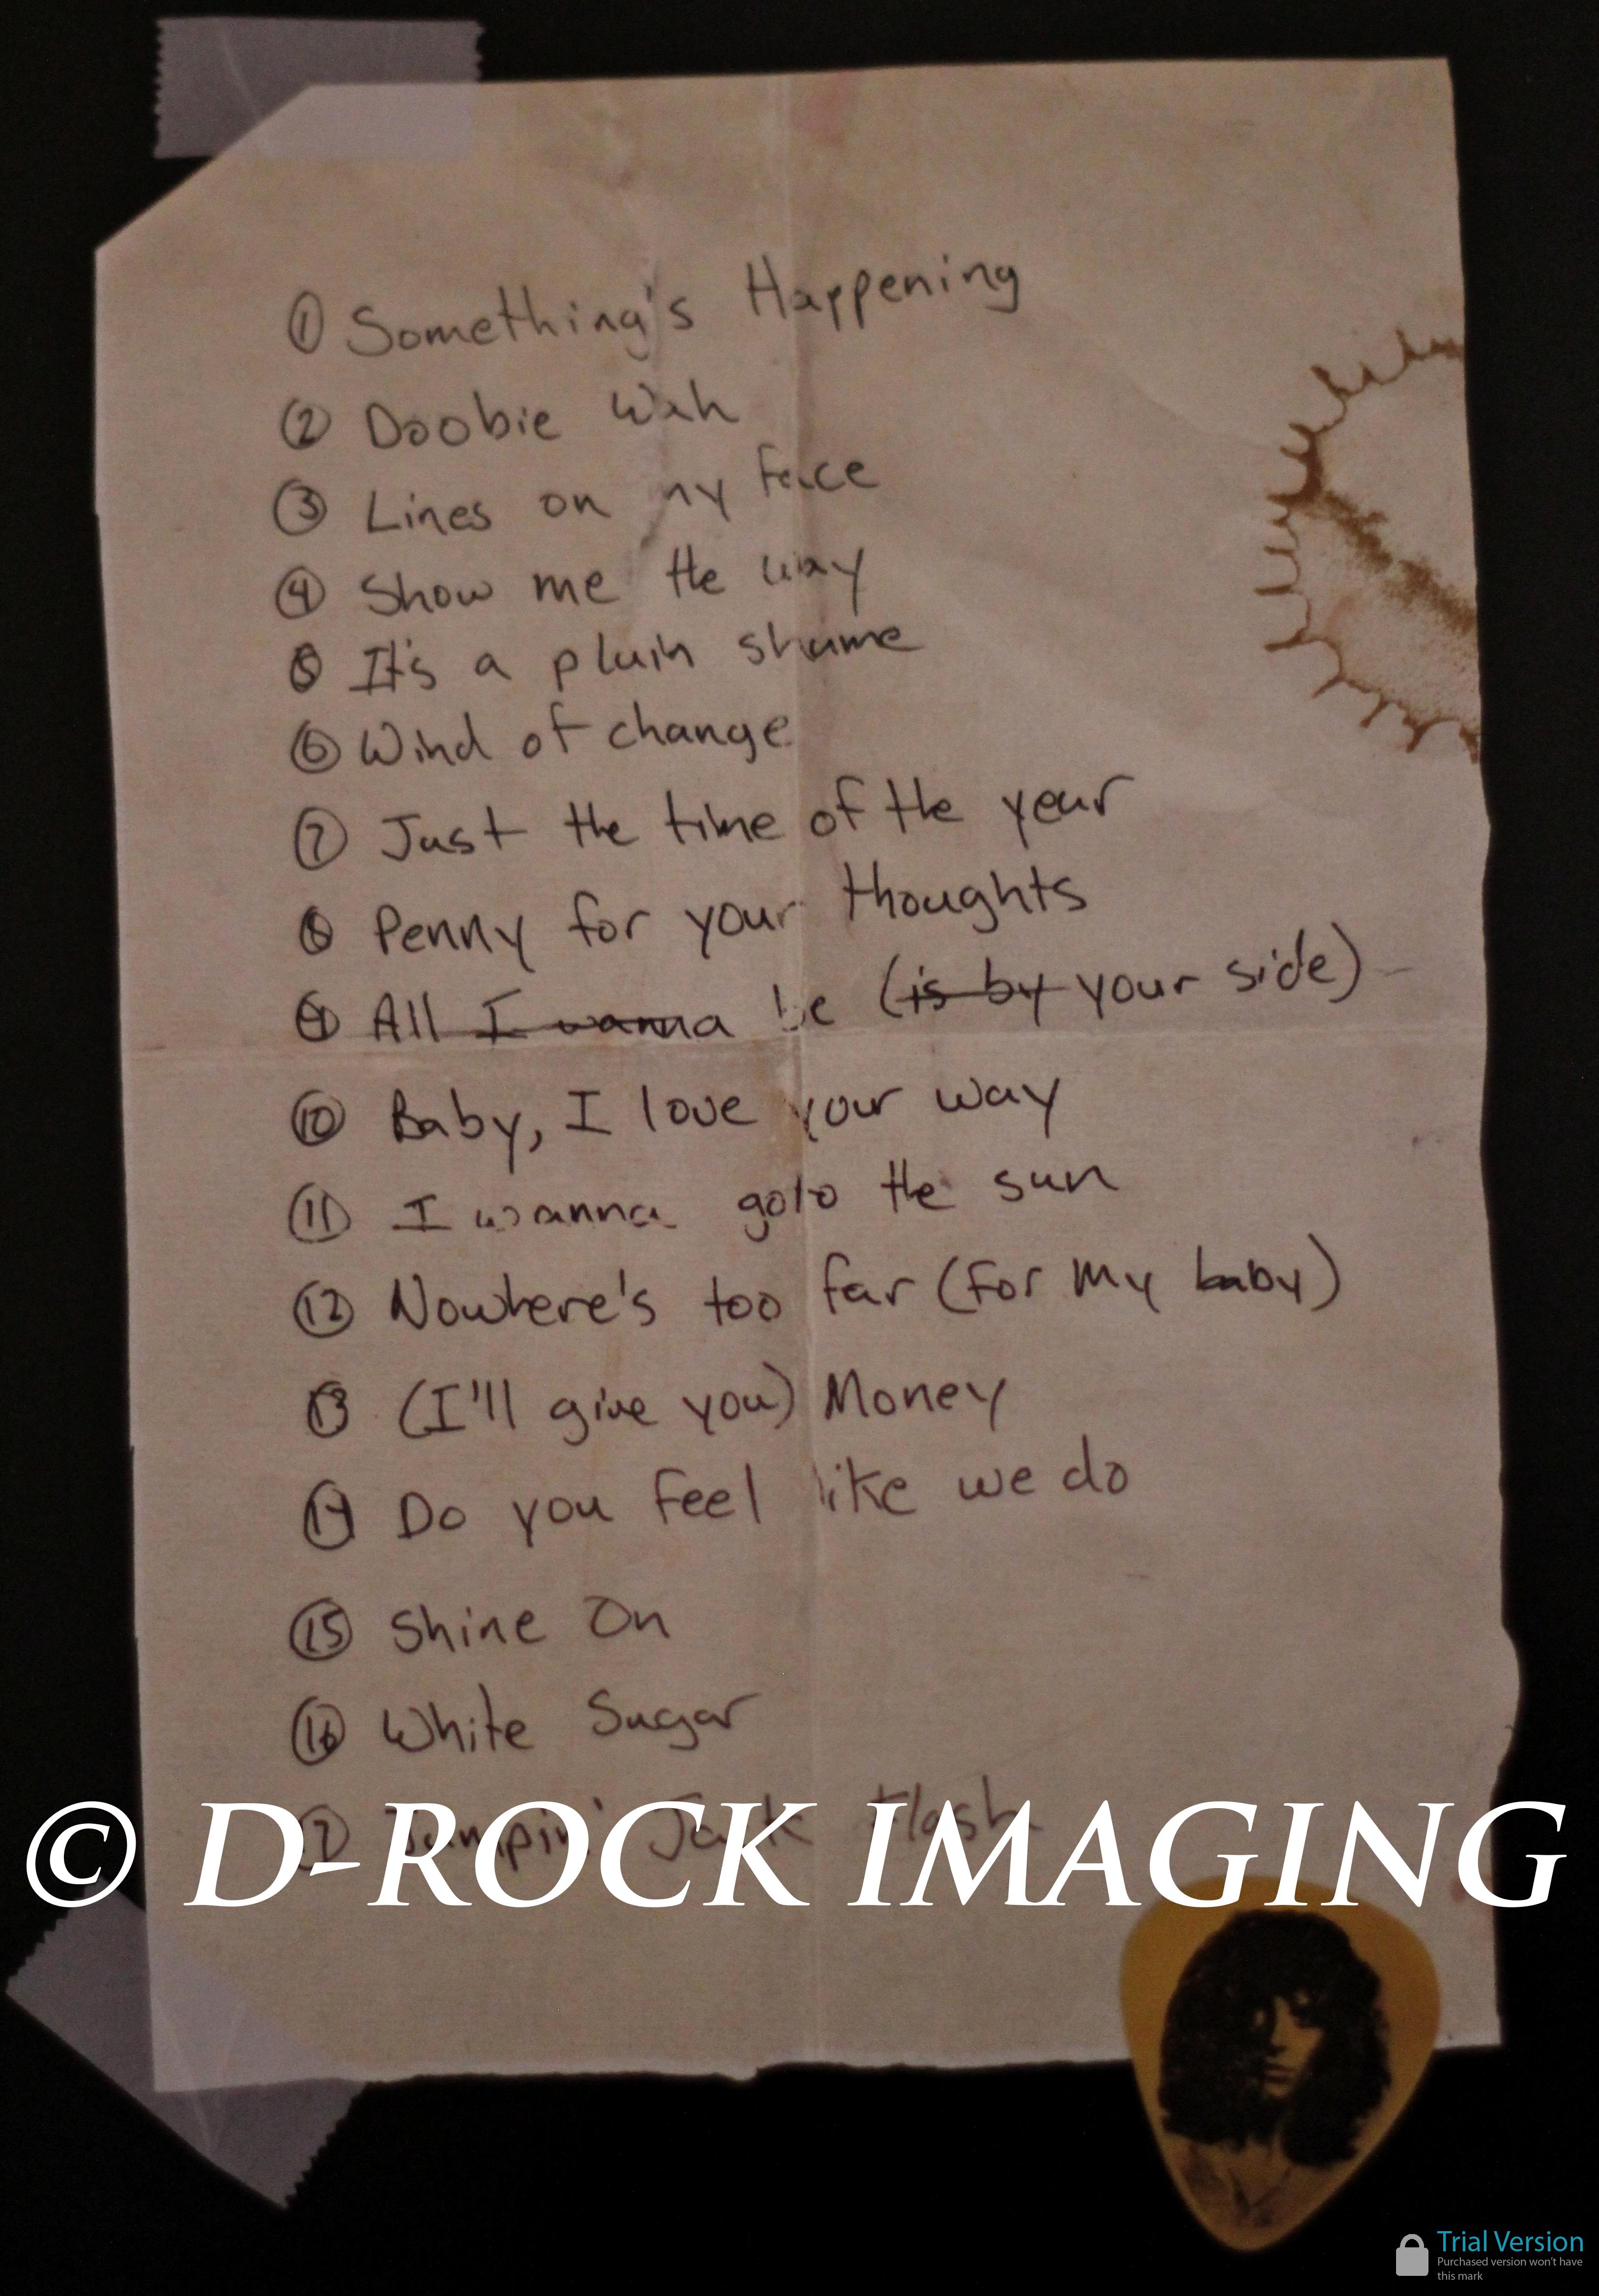 ① Something's Happening
② Doobie Wah
③ Lines on my face
④ Show me the way
⑤ It's a plain shame
⑥ Wind of change
⑦ Just the time of the year
⑧ Penny for your thoughts
⑨ All I wanna be (is by your side)
⑩ Baby, I love your way
⑪ I wanna go to the sun
⑫ Nowhere's too far (for my baby)
⑬ (I'll give you) Money
⑭ Do you feel like we do
⑮ Shine On
⑯ White Sugar
⑰ Jumpin' Jack Flash
© D-ROCK IMAGING
Trial Version
Purchased version won't have
this mark